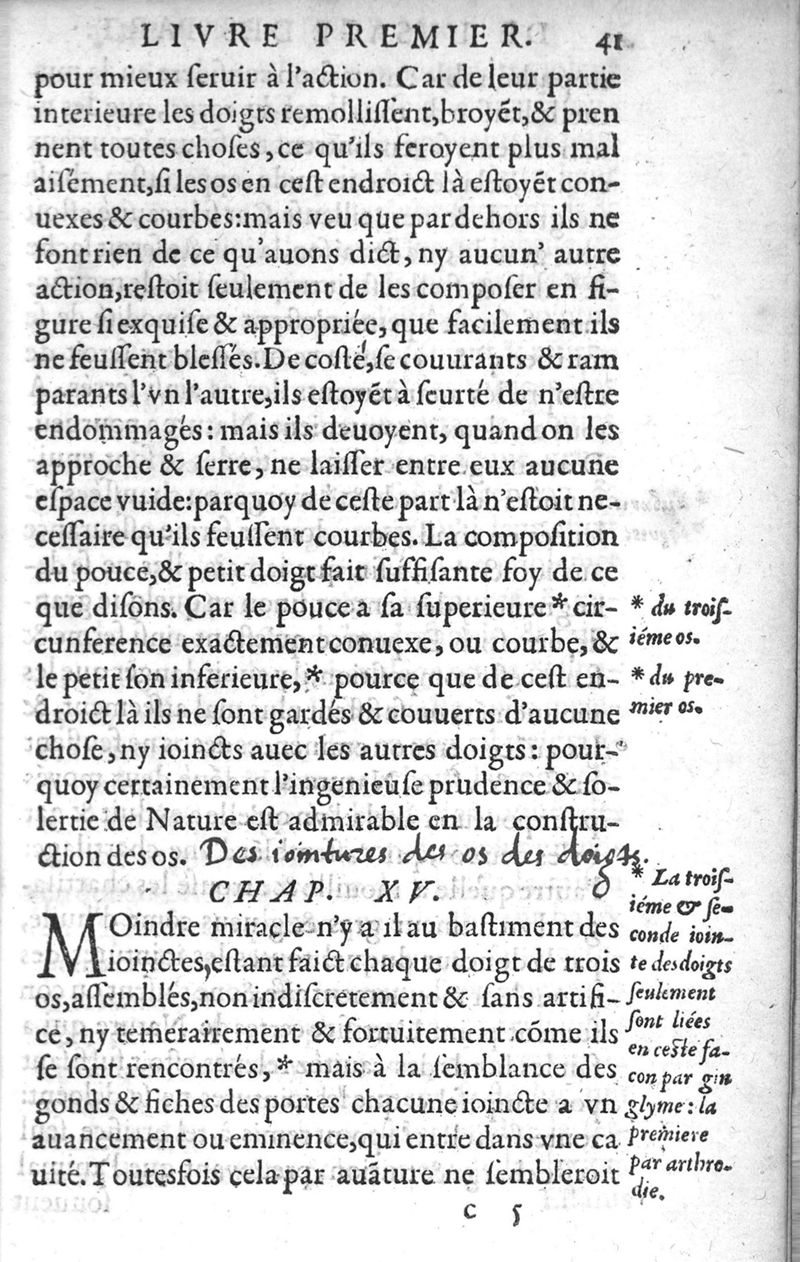 LIVRE PREMIER. 41
pour mieux ſeruir à l'action. Car de leur partie
interieure les doigts remolliſſent,broyẽt,& pren
nent toutes choſes, ce qu'ils feroyent plus mal
aiſément,ſi les os en ceſt endroict là eſtoyẽt con-
uexes & courbes:mais veu que par dehors ils ne
font rien de ce qu'auons dict, ny aucun' autre
action,reſtoit ſeulement de les compoſer en fi-
gure ſi exquiſe & appropriée, que facilement ils
ne feuſſent bleſſés. De coſté,ſe couurants & ram
parants l'vn l'autre,ils eſtoyẽt à ſeurté de n'eſtre
endommagés: mais ils deuoyent, quand on les
approche & ſerre, ne laiſſer entre eux aucune
eſpace vuide:parquoy de ceſte part là n'eſtoit ne-
ceſſaire qu'ils feuſſent courbes. La compoſition
du pouce,& petit doigt fait ſuffiſante foy de ce
que diſons. Car le pouce a ſa ſuperieure * cir-
cunference exactement conuexe, ou courbe, &
le petit ſon inferieure, * pource que de ceſt en-
droict là ils ne ſont gardés & couuerts d'aucune
choſe, ny ioincts auec les autres doigts: pour-
quoy certainement l'ingenieuſe prudence & ſo-
lertie de Nature eſt admirable en la conſtru-
ction des os. Des iointures des os des doigts.
* du troiſ-
iéme os.
* du pre-
mier os.
CHAP. XV.
MOindre miracle n'y a il au baſtiment des
ioinctes,eſtant faict chaque doigt de trois
os,aſſemblés,non indiſcretement & ſans artifi-
ce, ny temerairement & fortuitement cõme ils
ſe ſont rencontrés, * mais à la ſemblance des
gonds & fiches des portes chacune ioincte a vn
auancement ou eminence,qui entre dans vne ca
uité. Toutesfois cela par auãture ne ſembleroit
* La troiſ-
iéme & ſe-
conde ioin-
te des doigts
ſeulement
ſont liées
en ceſte fa-
con par gin
glyme: la
premiere
par arthro-
die.
C 5